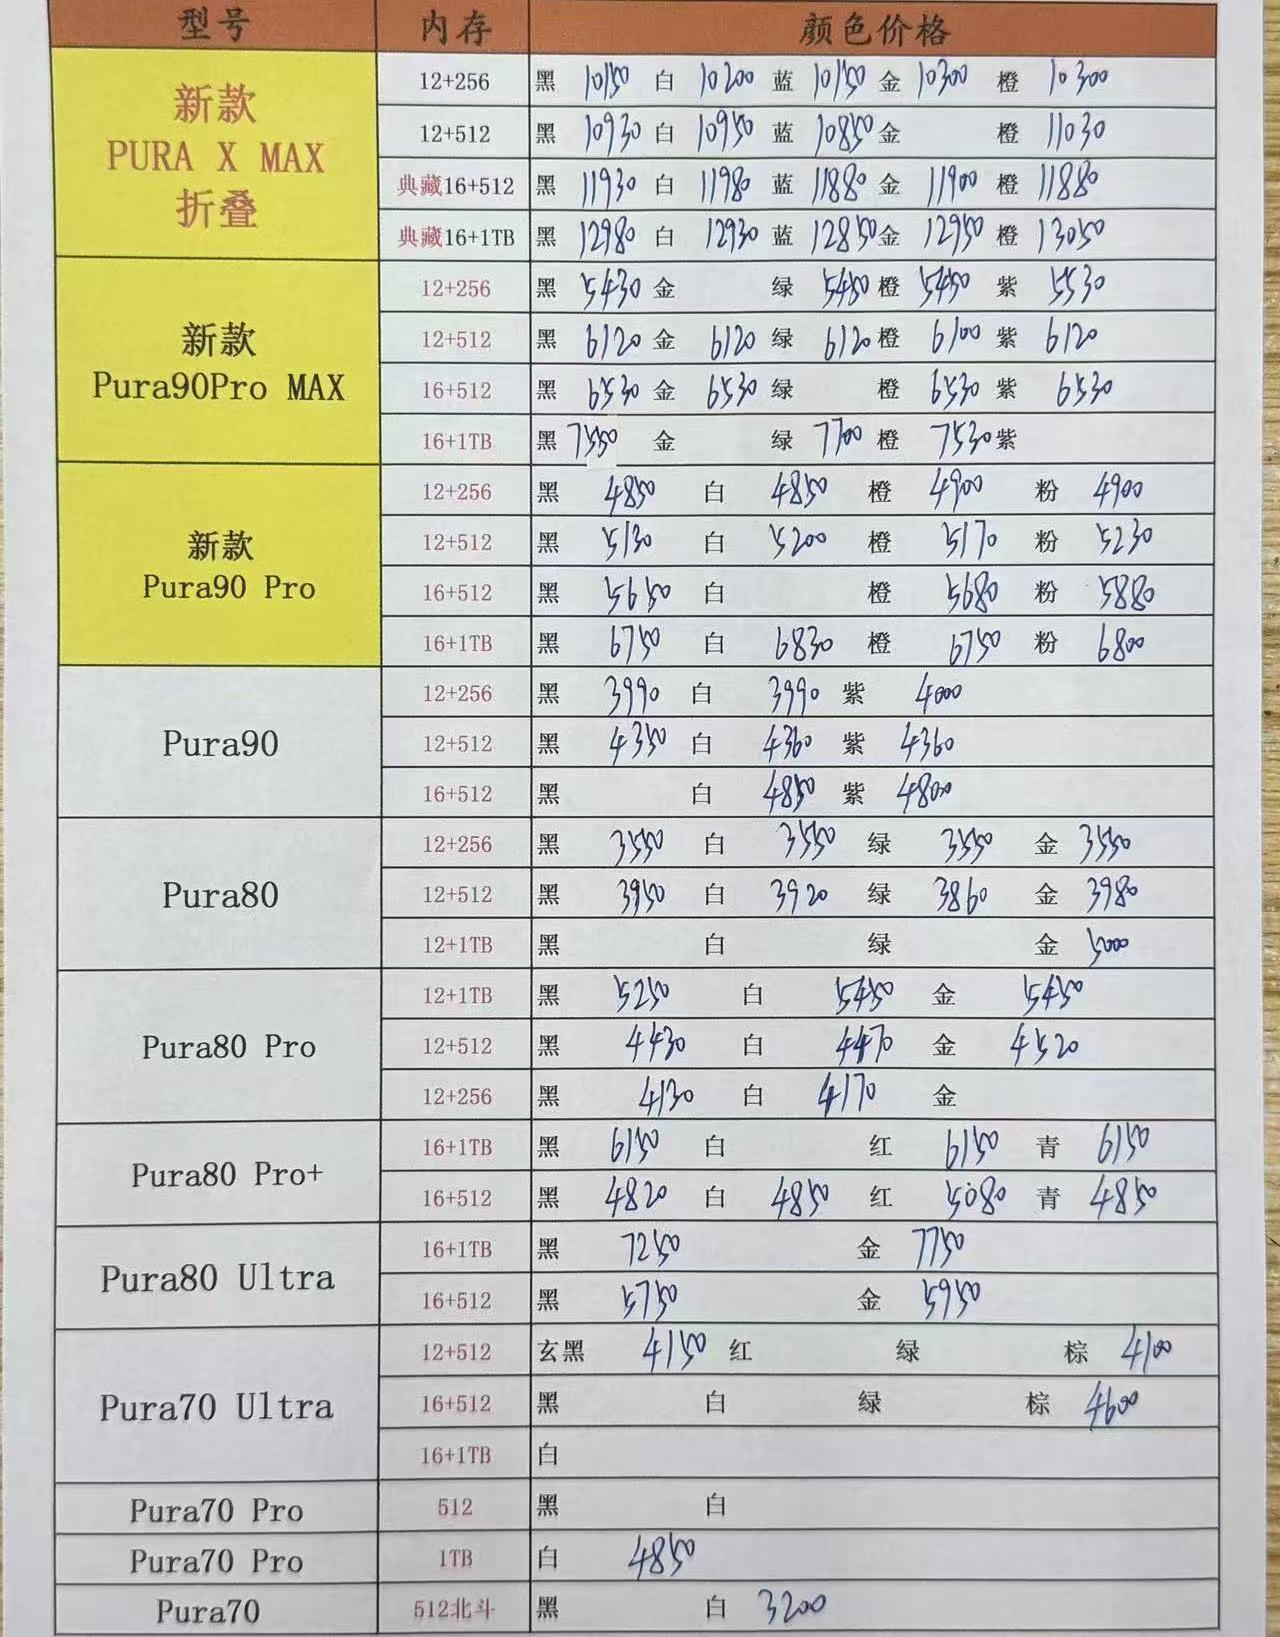 型号 内存 颜色价格
新款
PURA X MAX
折叠
12+256 黑 10150 白 10200 蓝 10150 金 10300 橙 10300
12+512 黑 10930 白 10950 蓝 10850 金 橙 11030
典藏16+512 黑 11930 白 11980 蓝 11880 金 11900 橙 11880
典藏16+1TB 黑 12980 白 12930 蓝 12850 金 12950 橙 13050
新款
Pura90Pro MAX
12+256 黑 5430 金 绿 5450 橙 5450 紫 5530
12+512 黑 6120 金 6120 绿 6120 橙 6100 紫 6120
16+512 黑 6530 金 6530 绿 橙 6530 紫 6530
16+1TB 黑 7550 金 绿 7700 橙 7530 紫
新款
Pura90 Pro
12+256 黑 4850 白 4850 橙 4900 粉 4900
12+512 黑 5130 白 5200 橙 5170 粉 5230
16+512 黑 5650 白 橙 5680 粉 5880
16+1TB 黑 6750 白 6830 橙 6750 粉 6800
Pura90
12+256 黑 3990 白 3990 紫 4000
12+512 黑 4350 白 4360 紫 4360
16+512 黑 白 4850 紫 4800
Pura80
12+256 黑 3550 白 3550 绿 3550 金 3550
12+512 黑 3950 白 3920 绿 3860 金 3980
12+1TB 黑 白 绿 金 5000
Pura80 Pro
12+1TB 黑 5250 白 5450 金 5450
12+512 黑 4430 白 4470 金 4520
12+256 黑 4130 白 4170 金
Pura80 Pro+
16+1TB 黑 6150 白 红 6150 青 6150
16+512 黑 4820 白 4850 红 5080 青 4850
Pura80 Ultra
16+1TB 黑 7250 金 7750
16+512 黑 5750 金 5950
Pura70 Ultra
12+512 玄黑 4150 红 绿 棕 4100
16+512 黑 白 绿 棕 4600
16+1TB 白
Pura70 Pro 512 黑 白
Pura70 Pro 1TB 白 4850
Pura70 512北斗 黑 白 3200